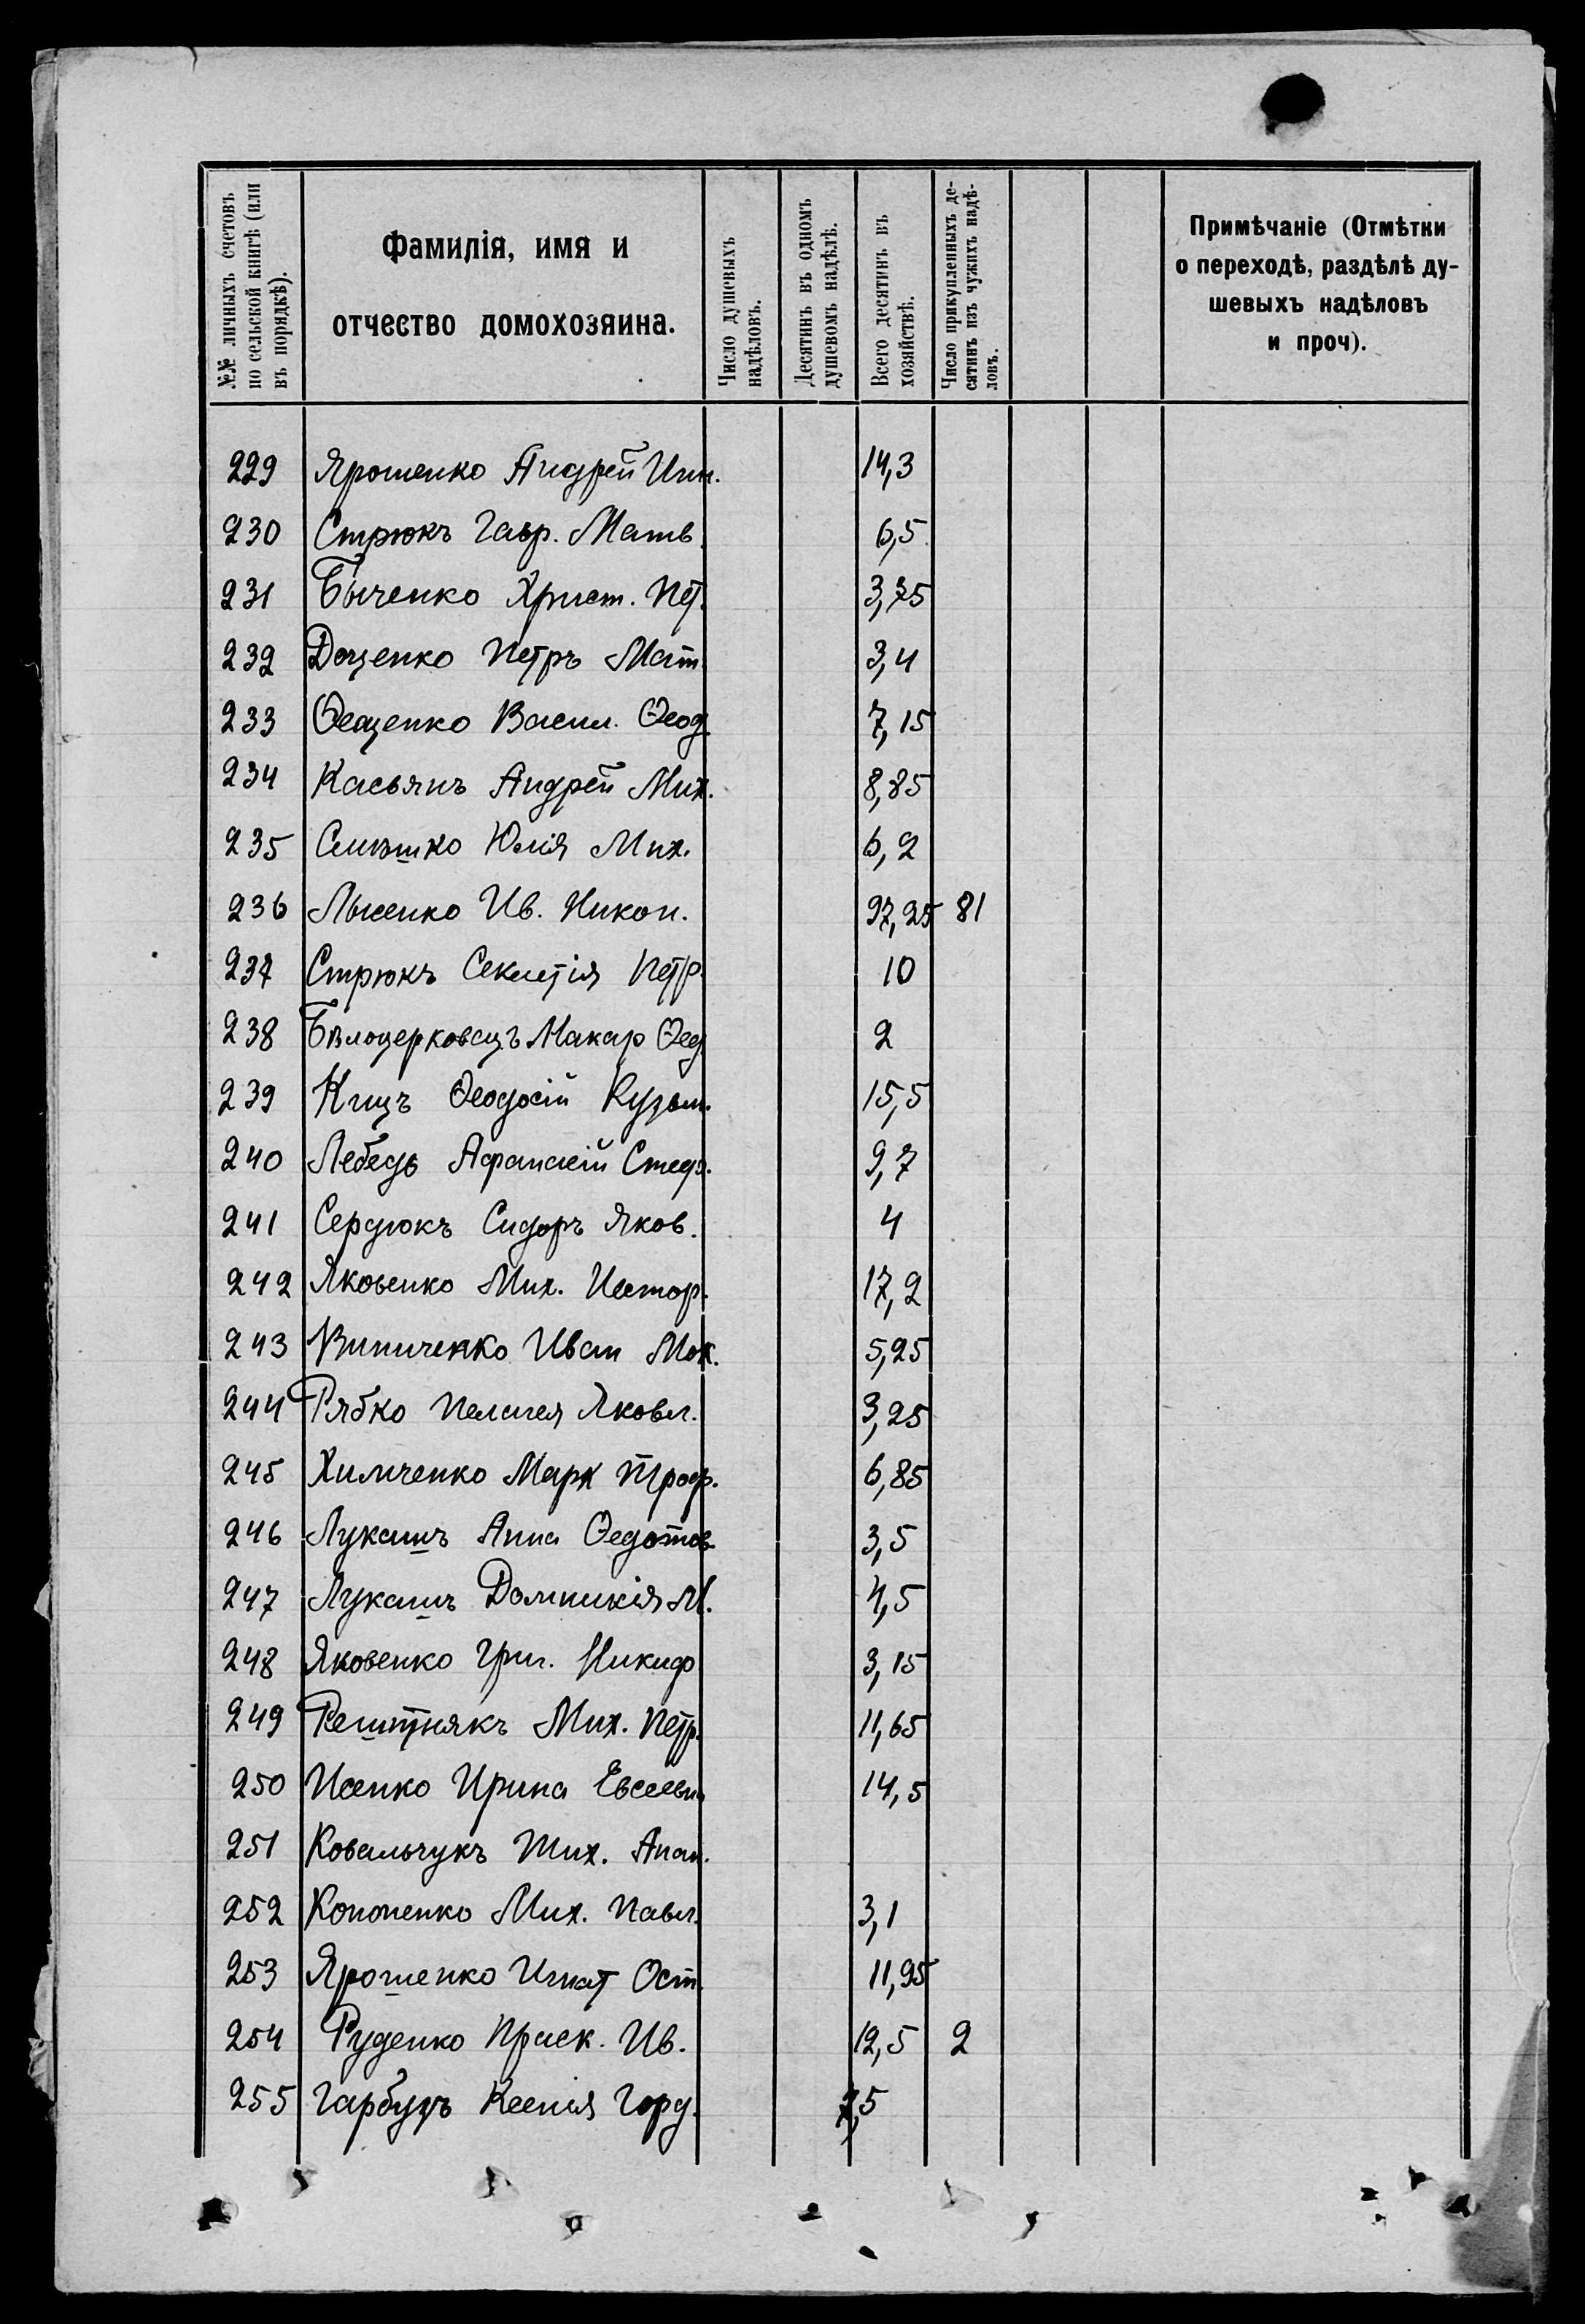 №№ личныхъ счетовъ
по сельской книгѣ (или
въ порядкѣ).
Фамилія, имя и
отчество домохозяина.
Число душевыхъ
надѣловъ.
Десятинъ въ одномъ
душевомъ надѣлѣ.
Всего десятинъ въ
хозяйствѣ.
Число прикупленныхъ де-
сятинъ изъ чужихъ надѣ-
ловъ.
Примѣчаніе (Отмѣтки
о переходѣ, раздѣлѣ ду-
шевыхъ надѣловъ
и проч).
229 Ярошенко Андрей 14,3
230 Стрюкъ Гавр. Матв. 6,5
231 Быченко Христ. Пет. 3,75
232 Доценко Петръ Мат. 3,4
233 Ѳещенко Васил. Ѳеод. 7,15
234 Касьянъ Андрей Мих. 8,85
235 Юлія Мих. 6,2
236 Лысенко Ив. Никон. 97,25 81
237 Стрюкъ Секлетія Петр. 10
238 Бѣлоцерковецъ Макар Ѳед. 2
239 Кицъ Ѳеодосій Кузьм. 15,5
240 Лебедь Афанасій Стеф. 9,7
241 Сердюкъ Сидоръ Яков. 4
242 Яковенко Мих. Нестор. 17,2
243 Винниченко Иван Мок. 5,25
244 Рябко Пелагея Яковл. 3,25
245 Химченко Марк Троф. 6,85
246 Лукашъ Анна Ѳедотов. 3,5
247 Лукашъ Домникія М. 4,5
248 Яковенко Григ. Никиф 3,15
249 Решетнякъ Мих. Петр. 11,65
250 Исенко Ирина Евсеевн 14,5
251 Ковальчукъ Тих. Анан.
252 Кононенко Мих. Павл. 3,1
253 Ярошенко Игнат Ост. 11,95
254 Руденко Праск. Ив. 12,5 2
255 Гарбузъ Ксенія Горд. 7,5